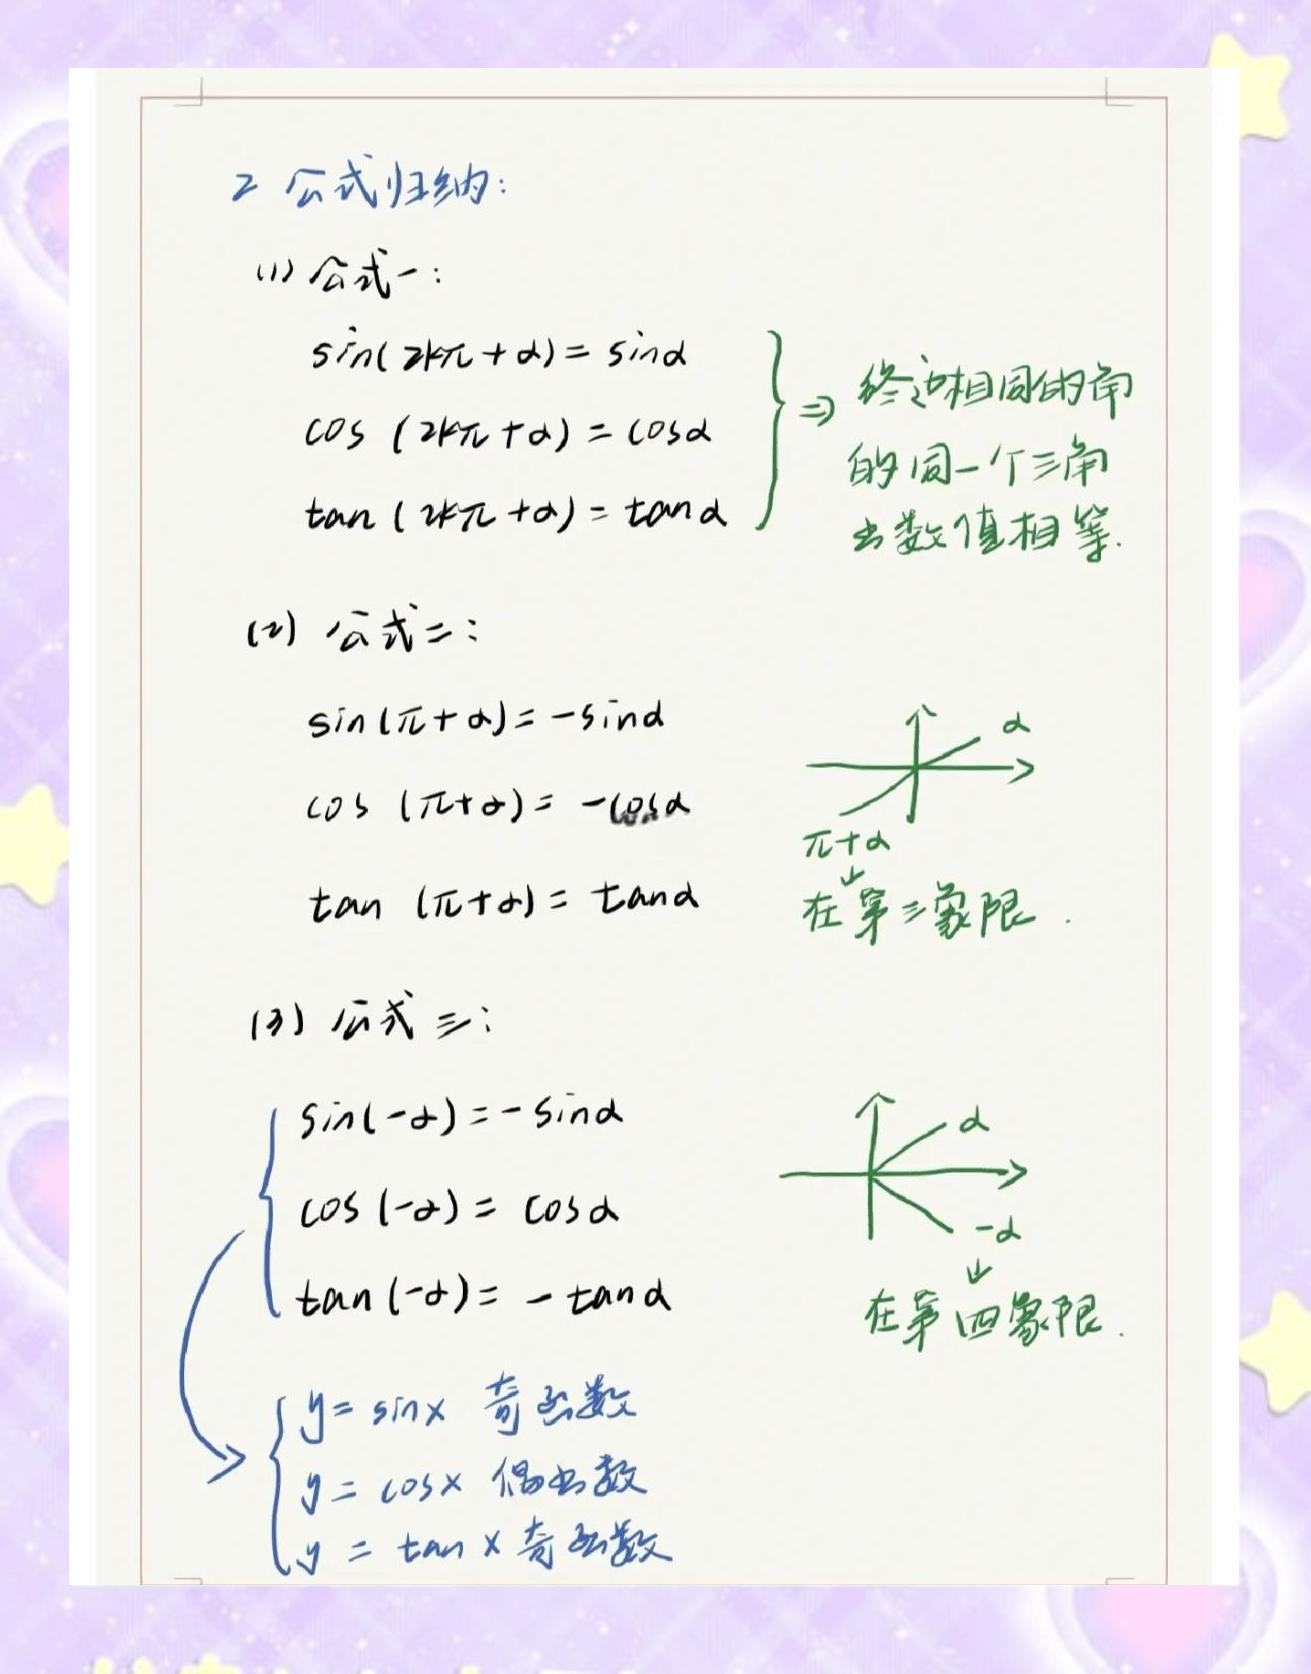 2 公式归纳:
(1) 公式一:
sin(2kπ+α)=sinα
cos(2kπ+α)=cosα
tan(2kπ+α)=tanα
⇒ 终边相同的角
的同一个三角
函数值相等.
(2) 公式二:
sin(π+α)=-sinα
cos(π+α)=-cosα
tan(π+α)=tanα
α
π+α
↓
在第三象限.
(3) 公式三:
sin(-α)=-sinα
cos(-α)=cosα
tan(-α)=-tanα
α
-α
↓
在第四象限.
y=sinx 奇函数
y=cosx 偶函数
y=tanx 奇函数